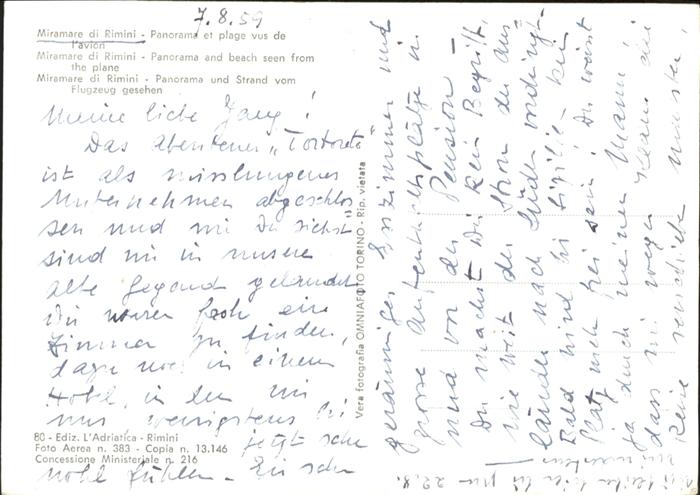 7.8.59
Miramare di Rimini - Panorama et plage vus de
l'avion
Miramare di Rimini - Panorama and beach seen from
the plane
Miramare di Rimini - Panorama und Strand vom
Flugzeug gesehen
Meine liebe
Das Abenteuer „Tortoreto"
ist als misslungenes
Unternehmen abgeschlos
sen und wie Du siehst
sind wir in unsere
alte Gegend gelandet.
Wir waren froh ein
Zimmer zu finden,
dazu noch in einem
Hotel, in dem wir
uns wenigstens bis
jetzt sehr
wohl fühlen. Ein sehr
80 - Ediz. L'Adriatica - Rimini
Foto Aerea n. 383 - Copia n. 13.146
Concessione Ministeriale n. 216
Vera fotografia OMNIAFOTO TORINO - Rip. vietata
geräumiges Esszimmer und
grosse Aufenthaltsplätze in
und vor der Pension.
Du machst Dir kein Begriff,
wie weit der Strom der Aus-
länder nach Süden vordringt.
Bald wird bis Sizilien kein
Platz mehr frei sein! Du weisst
ja durch meinen Mann,
dass wir wegen die
Reise verschieben mussten,
wir bleiben hier bis zum 22.8.